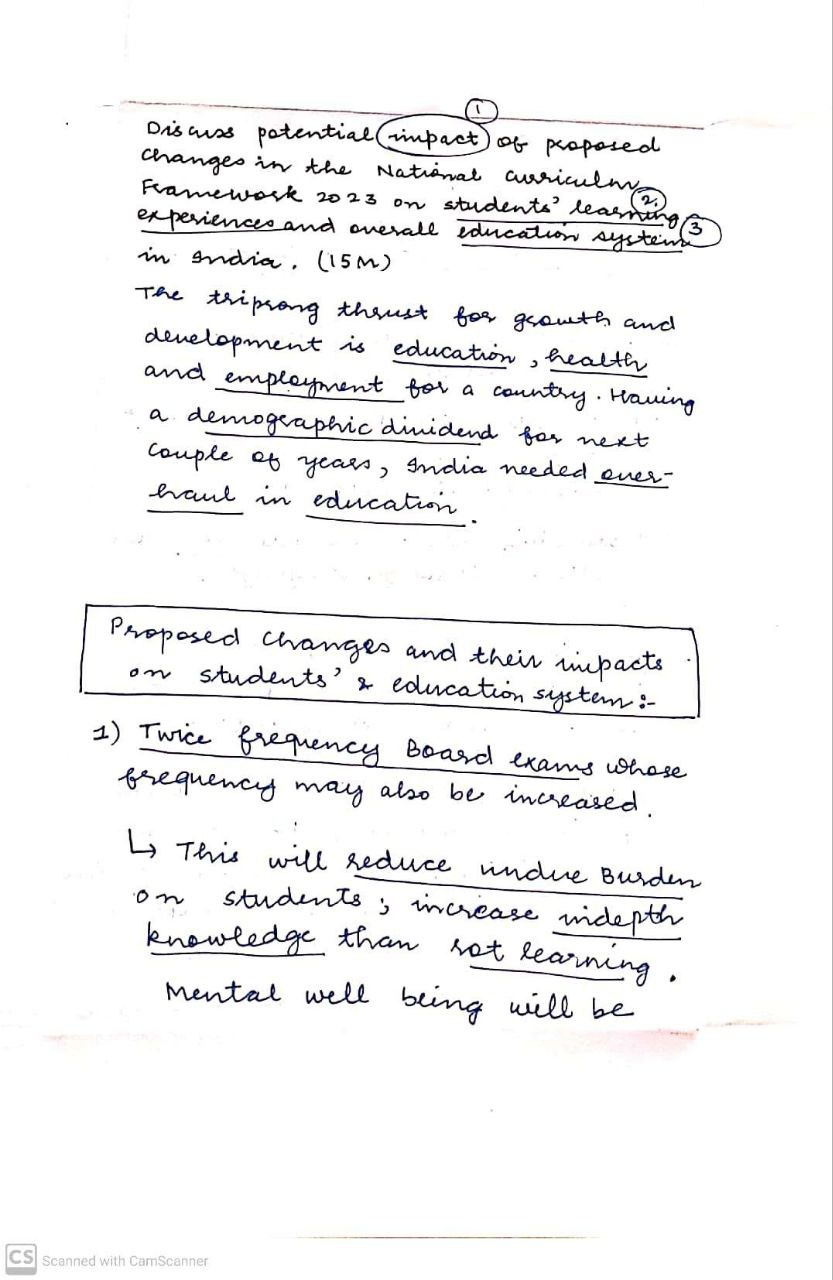 1
Discuss potential impact of proposed
changes in the National curriculum
2.
Framework 2023 on students' learning
3
experiences and overall education system
in India. (15M)
The triprong thrust for growth and
development is education, health
and employment for a country. Having
a demographic dividend for next
couple of years, India needed over-
haul in education.
Proposed changes and their impacts
on students' & education system :-
1) Twice frequency Board exams whose
frequency may also be increased.
↳ This will reduce undue Burden
on students ; increase indepth
knowledge than rot learning.
Mental well being will be
CS Scanned with CamScanner